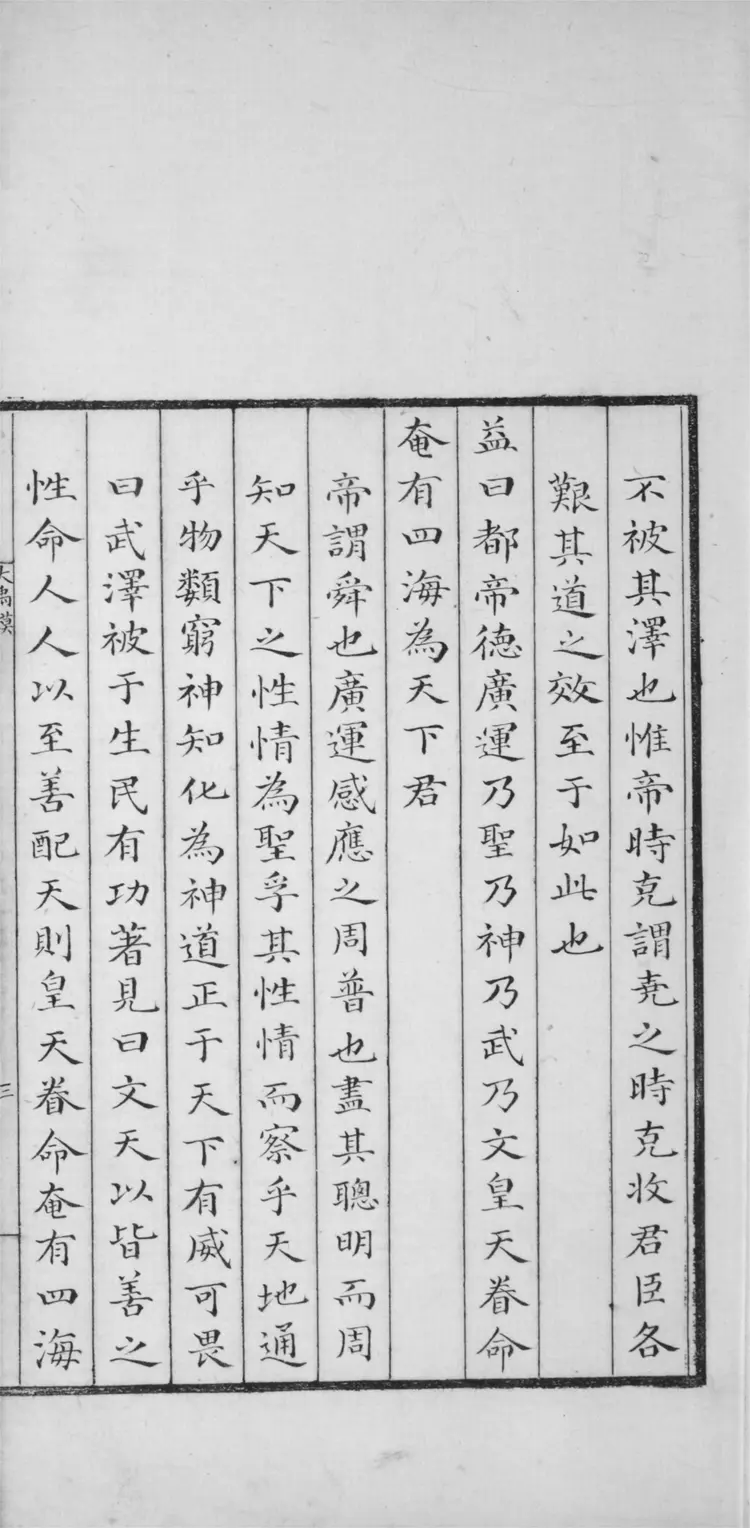 不被其澤也惟帝時克謂堯之時克收君臣各
艱其道之效至于如此也
益曰都帝德廣運乃聖乃神乃武乃文皇天眷命
奄有四海為天下君
帝謂舜也廣運感應之周普也盡其聰明而周
知天下之性情為聖孚其性情而察乎天地通
乎物類窮神知化為神道正于天下有威可畏
曰武澤被于生民有功著見曰文天以皆善之
性命人人以至善配天則皇天眷命奄有四海
大禹謨
三